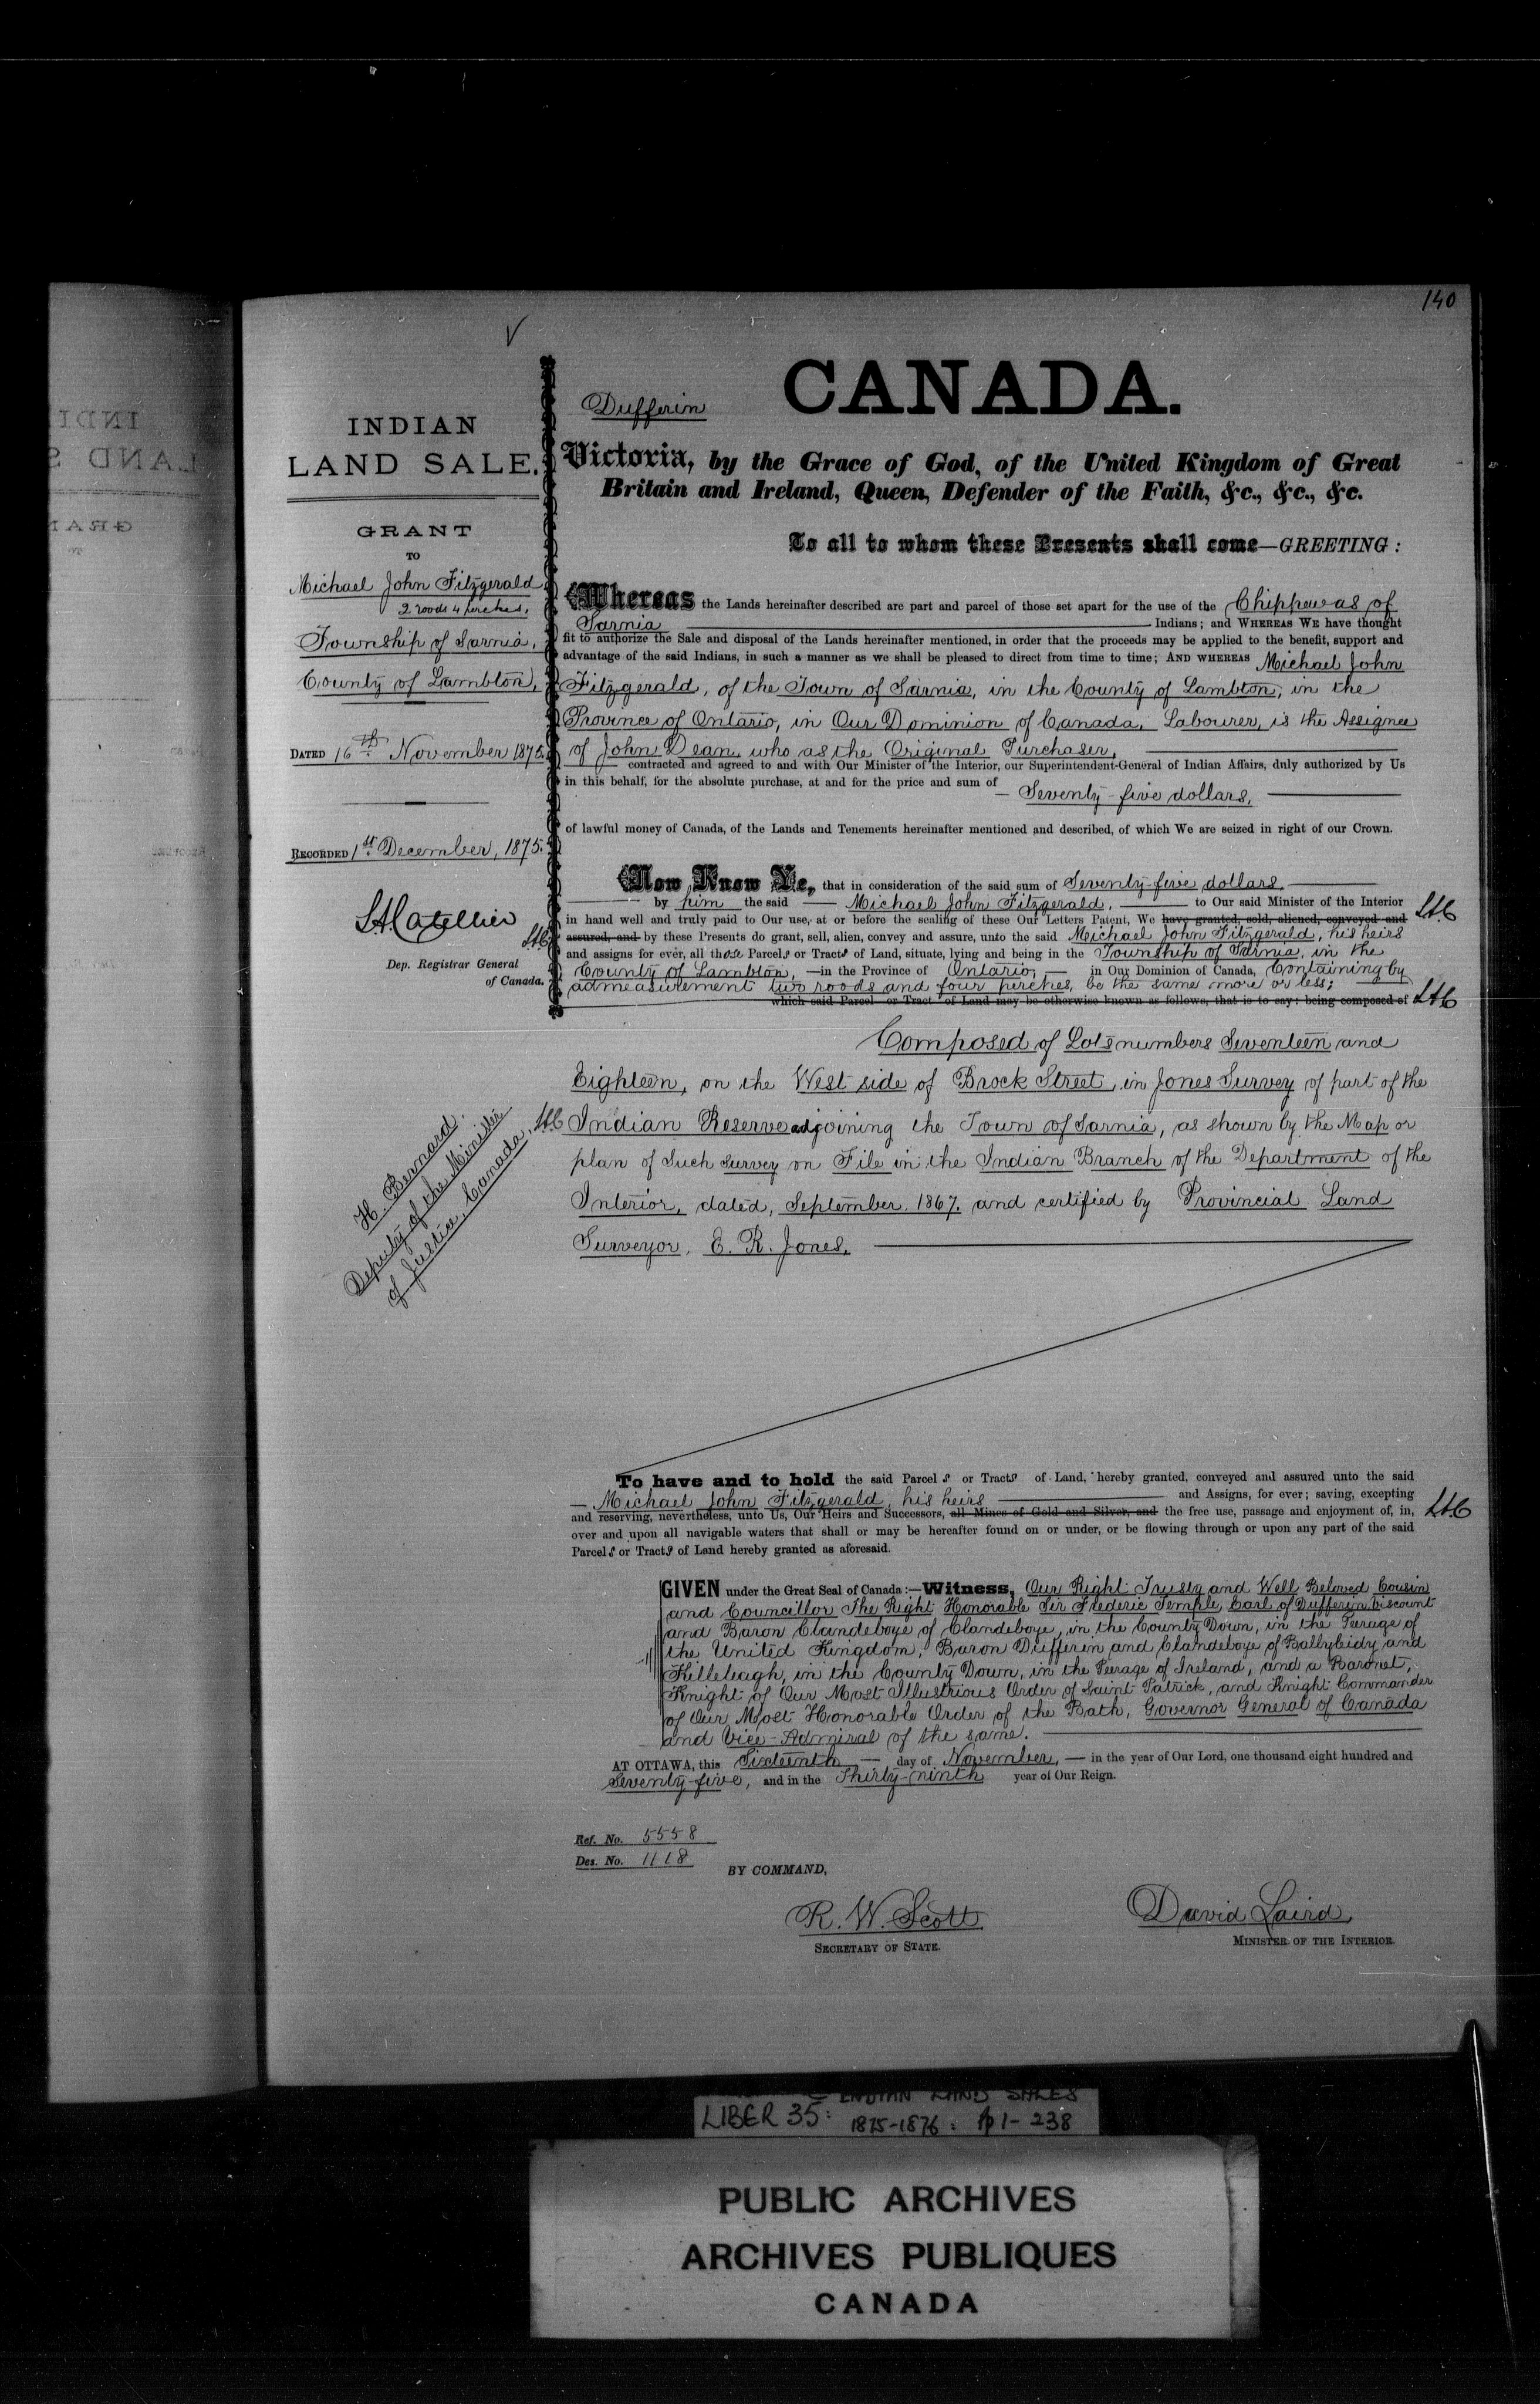 140
INDIAN
LAND SALE.
GRANT
TO
Michael John Fitzgerald
2 roods 4 perches.
Township of Sarnia,
County of Lambton,
DATED 16th November 1875.
RECORDED 1st December, 1875.
Dep. Registrar General
of Canada.
H. Bernard.
Deputy of the Minister
of Justice, Canada.
Dufferin
CANADA.
Victoria, by the Grace of God, of the United Kingdom of Great
Britain and Ireland, Queen, Defender of the Faith, &c., &c., &c.
To all to whom these Presents shall come—GREETING:
Whereas the Lands hereinafter described are part and parcel of those set apart for the use of the Chippewas of
Sarnia Indians; and WHEREAS WE have thought
fit to authorize the Sale and disposal of the Lands hereinafter mentioned, in order that the proceeds may be applied to the benefit, support and
advantage of the said Indians, in such a manner as we shall be pleased to direct from time to time; AND WHEREAS Michael John
Fitzgerald, of the Town of Sarnia, in the County of Lambton, in the
Province of Ontario, in Our Dominion of Canada, Labourer, is the Assignee
of John Dean who as the Original Purchaser,
contracted and agreed to and with Our Minister of the Interior, our Superintendent-General of Indian Affairs, duly authorized by Us
in this behalf, for the absolute purchase, at and for the price and sum of
— Seventy-five dollars,
of lawful money of Canada, of the Lands and Tenements hereinafter mentioned and described, of which We are seized in right of our Crown.
Now Know Ye, that in consideration of the said sum of Seventy-five dollars,
by him the said — Michael John Fitzgerald, — to Our said Minister of the Interior
in hand well and truly paid to Our use, at or before the sealing of these Our Letters Patent, We have granted, sold, aliened, conveyed and
assured, and by these Presents do grant, sell, alien, convey and assure, unto the said Michael John Fitzgerald, his heirs
and assigns for ever, all those Parcels or Tracts of Land, situate, lying and being in the Township of Sarnia, in the
County of Lambton, — in the Province of Ontario, — in Our Dominion of Canada, Containing by
admeasurement two roods and four perches, be the same more or less;
which said Parcel or Tract of Land may be otherwise known as follows, that is to say: being composed of
Composed of Lots numbers Seventeen and
Eighteen, on the West side of Brock Street, in Jones Survey of part of the
Indian Reserve adjoining the Town of Sarnia, as shown by the Map or
plan of Such survey on File in the Indian Branch of the Department of the
Interior, dated, September, 1867. and certified by Provincial Land
Surveyor, E. R. Jones.
To have and to hold the said Parcels or Tracts of Land, hereby granted, conveyed and assured unto the said
— Michael John Fitzgerald, his heirs — and Assigns, for ever; saving, excepting
and reserving, nevertheless, unto Us, Our Heirs and Successors, all Mines of Gold and Silver, and the free use, passage and enjoyment of, in,
over and upon all navigable waters that shall or may be hereafter found on or under, or be flowing through or upon any part of the said
Parcels or Tracts of Land hereby granted as aforesaid.
GIVEN under the Great Seal of Canada:—Witness, Our Right Trusty and Well Beloved Cousin
and Councillor The Right Honorable Sir Frederic Temple, Earl of Dufferin, Viscount
and Baron Clandeboye of Clandeboye, in the County Down, in the Peerage of
the United Kingdom, Baron Dufferin and Clandeboye of Ballyleidy and
Killeleagh, in the County Down, in the Peerage of Ireland, and a Baronet,
Knight of Our Most Illustrious Order of Saint Patrick, and Knight Commander
of Our Most Honorable Order of the Bath, Governor General of Canada
and Vice-Admiral of the same.
AT OTTAWA, this Sixteenth — day of November, — in the year of Our Lord, one thousand eight hundred and
Seventy-five, and in the Thirty-ninth year of Our Reign.
Ref. No. 5558
Des. No. 1118
BY COMMAND,
R. W. Scott
SECRETARY OF STATE.
David Laird,
MINISTER OF THE INTERIOR.
INDIAN LAND SALES
LIBER 35: 1875-1876: p 1-238
PUBLIC ARCHIVES
ARCHIVES PUBLIQUES
CANADA